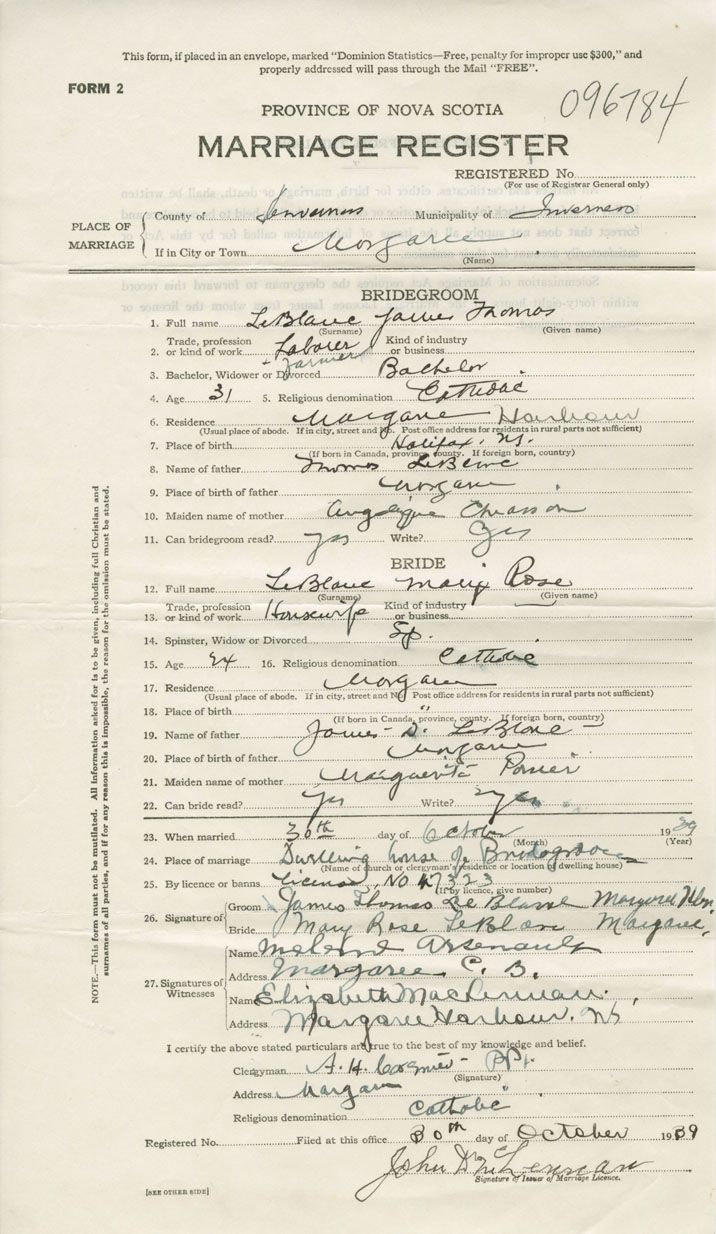 This form, if placed in an envelope, marked "Dominion Statistics—Free, penalty for improper use $300," and
properly addressed will pass through the Mail "FREE".
FORM 2
096784
PROVINCE OF NOVA SCOTIA
MARRIAGE REGISTER
REGISTERED No.
(For use of Registrar General only)
PLACE OF MARRIAGE
County of Inverness Municipality of Inverness
If in City or Town Margaree
(Name)
BRIDEGROOM
1. Full name LeBlanc James Thomas
(Surname) (Given name)
2. Trade, profession or kind of work Laborer + Farmer Kind of industry or business
3. Bachelor, Widower or Divorced Bachelor
4. Age 31 5. Religious denomination Catholic
6. Residence Margaree Harbour
(Usual place of abode. If in city, street and No. Post office address for residents in rural parts not sufficient)
7. Place of birth Halifax, NS.
(If born in Canada, province, county. If foreign born, country)
8. Name of father Thomas LeBlanc
9. Place of birth of father Margaree
10. Maiden name of mother Angelique Chiasson
11. Can bridegroom read? yes Write? yes
BRIDE
12. Full name LeBlanc Mary Rose
(Surname) (Given name)
13. Trade, profession or kind of work Housewife Kind of industry or business
14. Spinster, Widow or Divorced Sp.
15. Age 24 16. Religious denomination Catholic
17. Residence Margaree
(Usual place of abode. If in city, street and No Post office address for residents in rural parts not sufficient)
18. Place of birth "
(If born in Canada, province, county. If foreign born, country)
19. Name of father James D. LeBlanc
20. Place of birth of father Margaree
21. Maiden name of mother Marguerite Poirier
22. Can bride read? yes Write? yes
23. When married 30th day of October 1939
(Month) (Year)
24. Place of marriage Dwelling house of Bridegroom
(Name of church or clergyman's residence or location of dwelling house)
25. By licence or banns License, No 47323
(If by licence, give number)
26. Signature of
Groom James Thomas Le Blanc Margaree
Bride Mary Rose LeBlanc Margaree,
27. Signatures of Witnesses
Name Arsenault
Address Margaree C. B.
Name Elizabeth MacLennan.
Address Margaree Harbour. NS
I certify the above stated particulars are true to the best of my knowledge and belief.
Clergyman A. H. Cormier - PP.
(Signature)
Address Margaree
Religious denomination Catholic
Registered No. Filed at this office 30th day of October 1939
John D McLennan
Signature of Issuer of Marriage Licence.
[SEE OTHER SIDE]
NOTE.—This form must not be mutilated. All information asked for is to be given, including full Christian and
surnames of all parties, and if for any reason this is impossible, the reason for the omission must be stated.